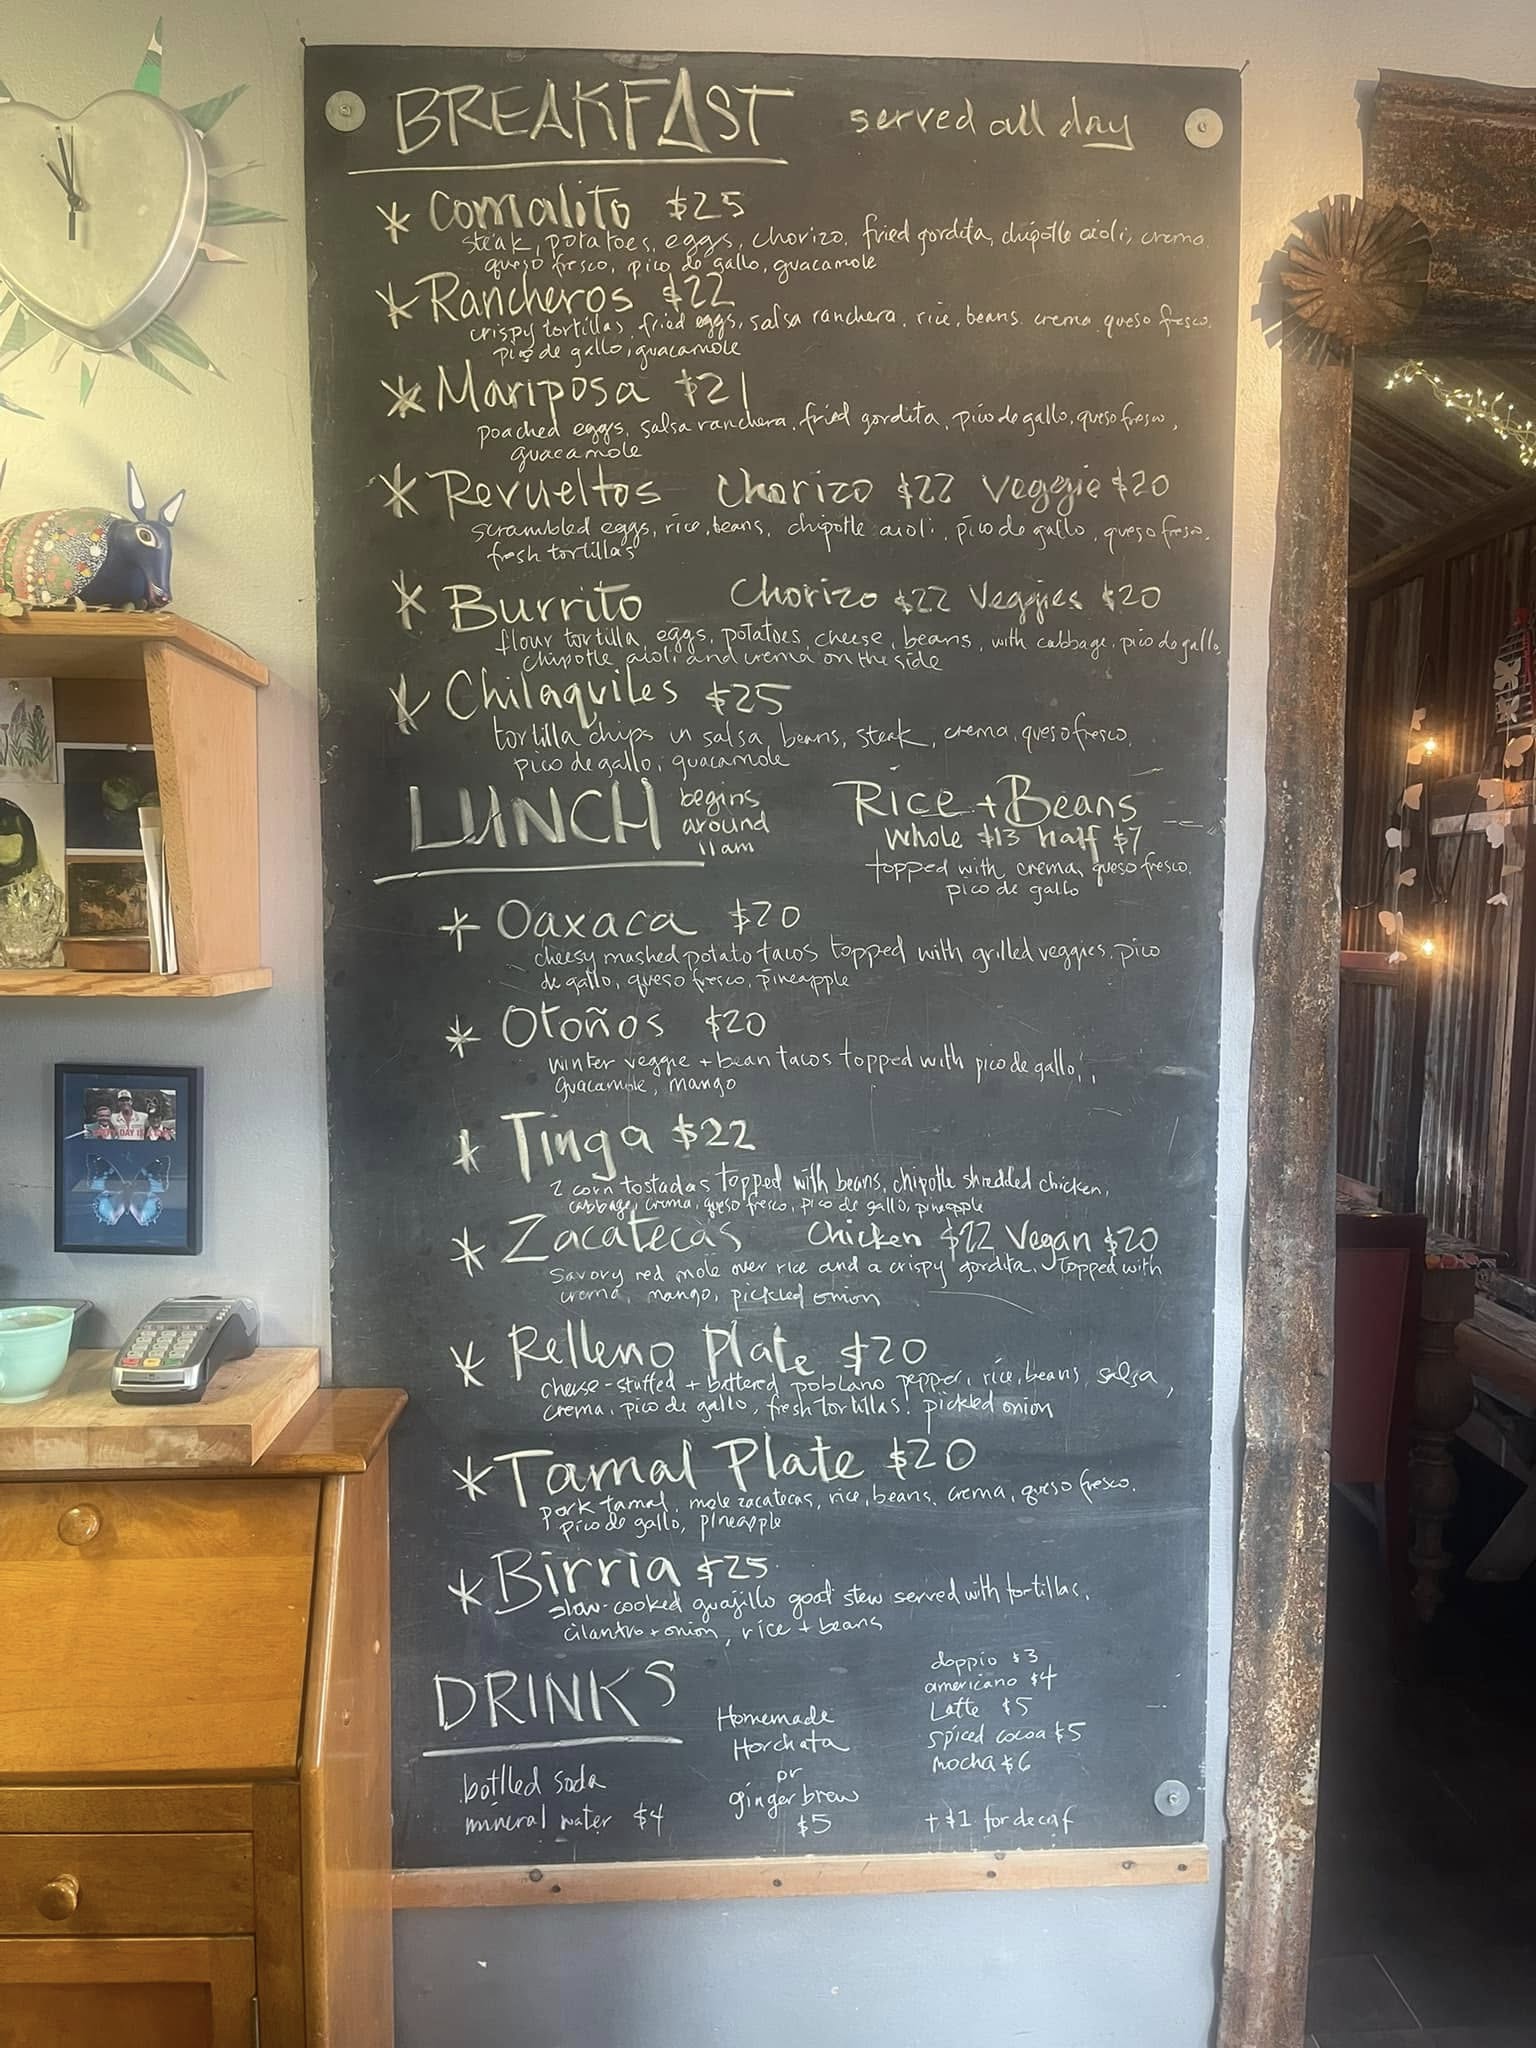 BREAKFAST served all day
* Comalito $25
steak, potatoes, eggs, chorizo, fried gordita, chipotle aioli, crema,
queso fresco, pico de gallo, guacamole
* Rancheros $22
crispy tortillas, fried eggs, salsa ranchera, rice, beans, crema, queso fresco,
pico de gallo, guacamole
* Mariposa $21
poached eggs, salsa ranchera, fried gordita, pico de gallo, queso fresco,
guacamole
* Revueltos Chorizo $22 Veggie $20
scrambled eggs, rice, beans, chipotle aioli, pico de gallo, queso fresco,
fresh tortillas
* Burrito Chorizo $22 Veggies $20
flour tortilla, eggs, potatoes, cheese, beans, with cabbage, pico de gallo,
chipotle aioli and crema on the side
* Chilaquiles $25
tortilla chips in salsa, beans, steak, crema, queso fresco,
pico de gallo, guacamole
LUNCH begins
around
11am
Rice + Beans
whole $13 half $7
topped with crema, queso fresco,
pico de gallo
* Oaxaca $20
cheesy mashed potato tacos topped with grilled veggies, pico
de gallo, queso fresco, pineapple
* Otoños $20
winter veggie + bean tacos topped with pico de gallo,
guacamole, mango
* Tinga $22
2 corn tostadas topped with beans, chipotle shredded chicken,
cabbage, crema, queso fresco, pico de gallo, pineapple
* Zacatecas Chicken $22 Vegan $20
savory red mole over rice and a crispy gordita. Topped with
crema, mango, pickled onion
* Relleno Plate $20
cheese-stuffed + battered poblano pepper, rice, beans, salsa,
crema, pico de gallo, fresh tortillas, pickled onion
* Tamal Plate $20
pork tamal, mole zacatecas, rice, beans, crema, queso fresco,
pico de gallo, pineapple
* Birria $25
slow-cooked guajillo goat stew served with tortillas,
cilantro + onion, rice + beans
DRINKS
bottled soda
mineral water $4
Homemade
Horchata
or
ginger brew
$5
doppio $3
americano $4
Latte $5
spiced cocoa $5
mocha $6
+ $1 for decaf